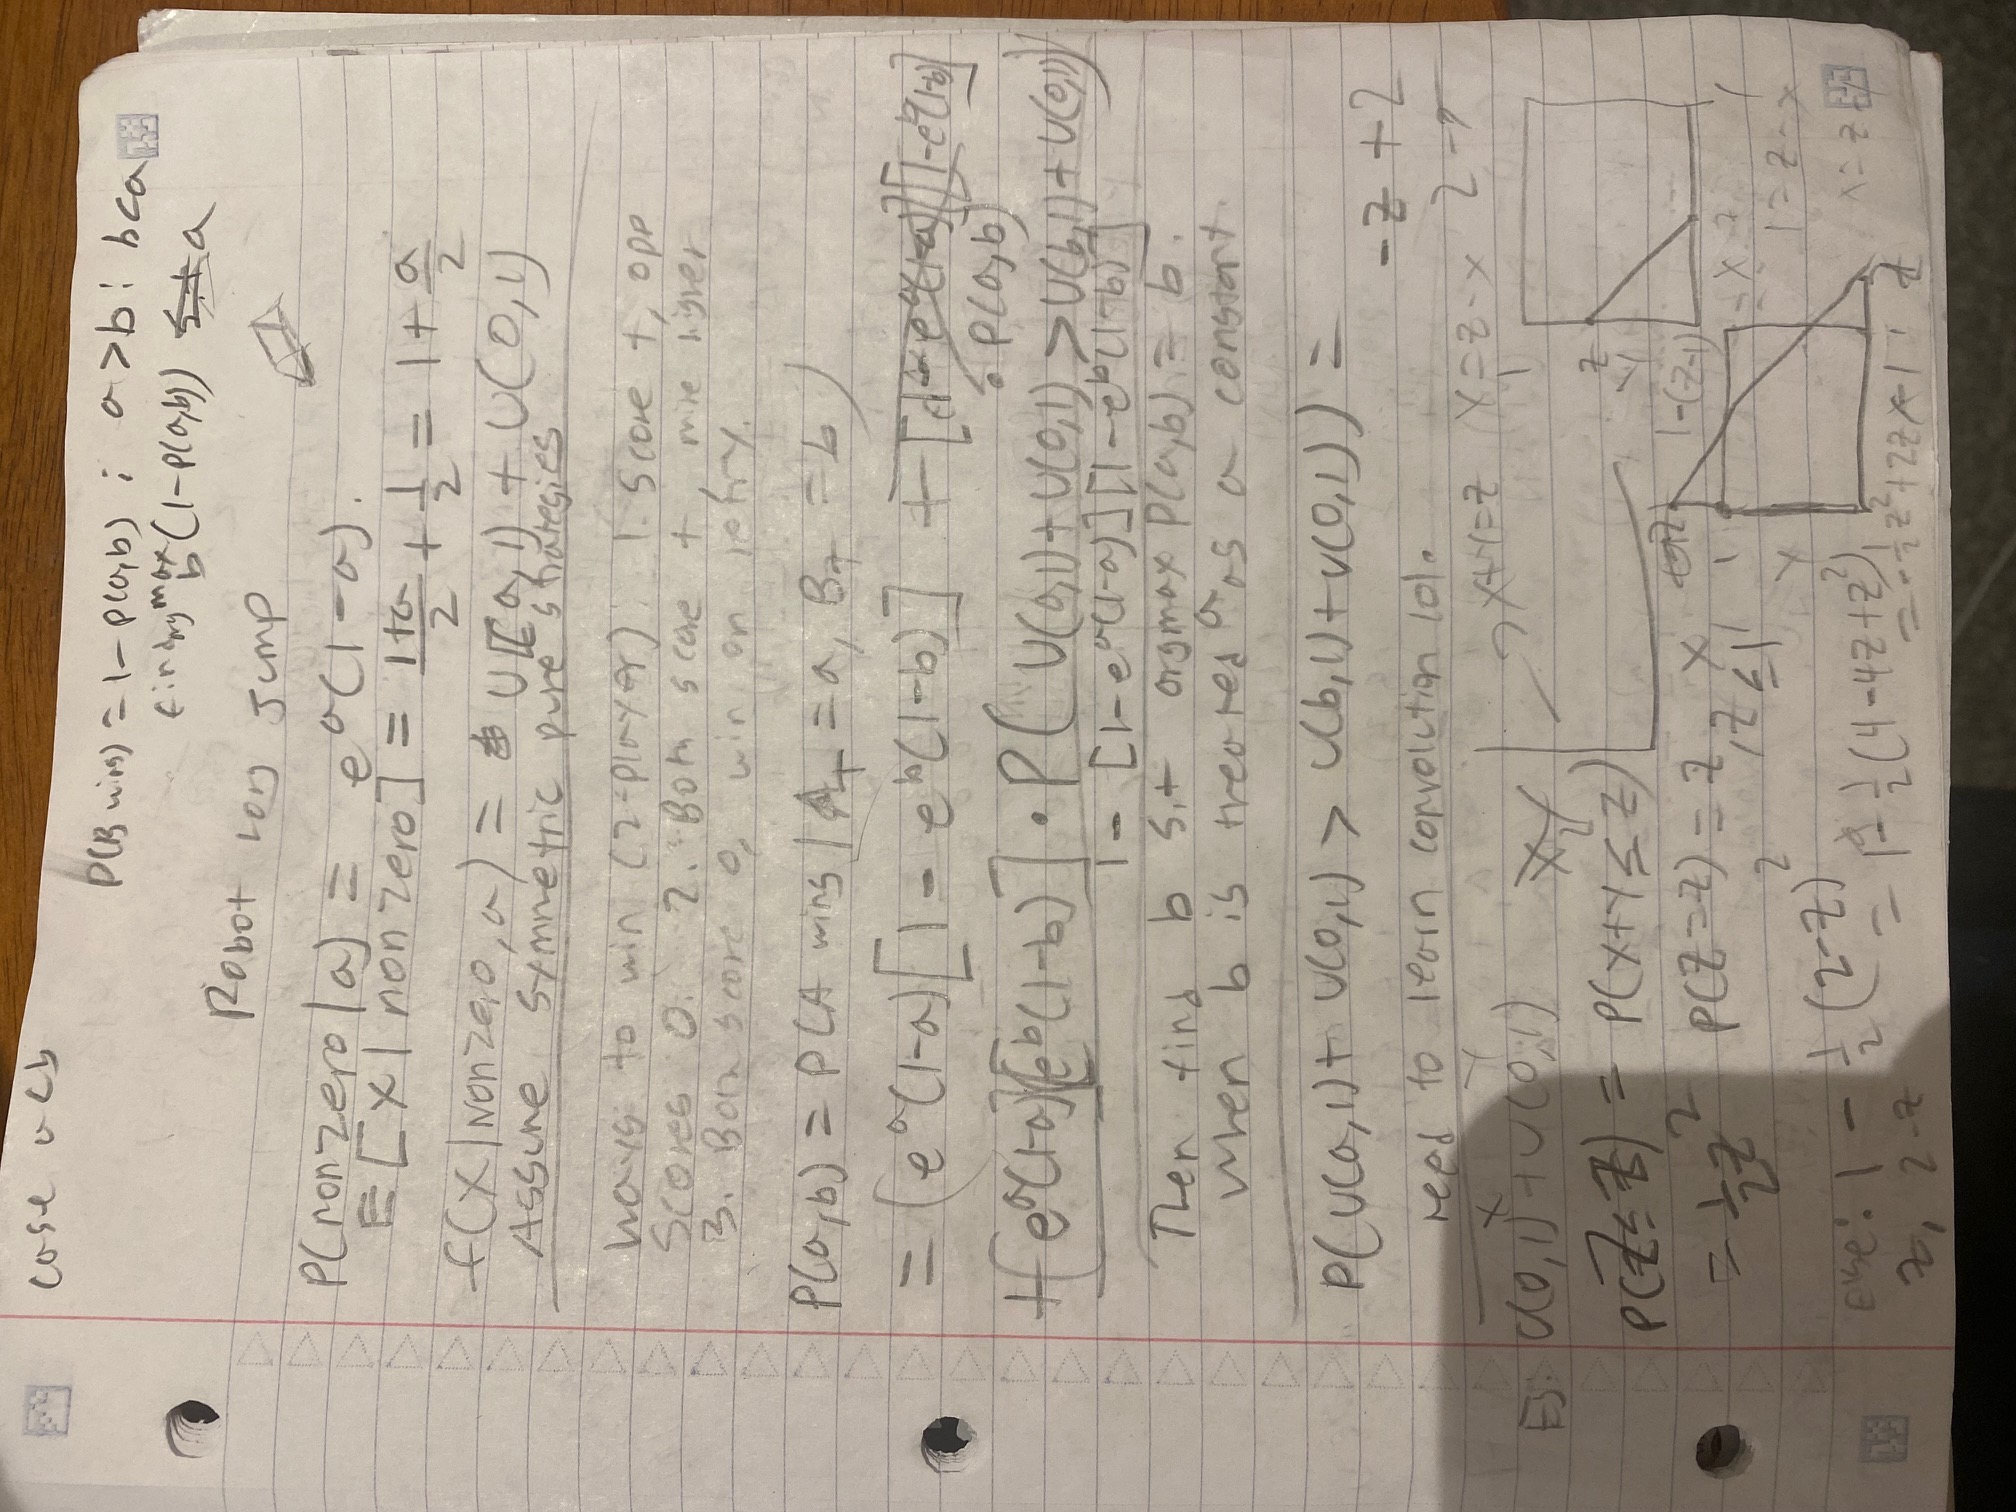 case a<b
P(B wins) = 1 - P(a,b) ; a > b : b<a
find argmax_b (1-P(a,b)) a
Robot long jump
P(nonzero | a) = e^a(1-a).
E[X | nonzero] = (1+a)/2 + 1/2 = 1 + a/2
f(X | Nonzero, a) = U[(a,1) + U(0,1)
Assume symmetric pure strategies
Ways to win (2-player): 1. Score +, opp
Scores 0. 2. Both score +, mine higher
3. Both score 0, win on retry.
P(a,b) = P(A wins | A_+ = a, B_+ = b)
= (e^a(1-a)[1 - e^b(1-b)] + [1-e^a(1-a)][1-e^b(1-b)]
· P(a,b)
+[e^a(1-a)][e^b(1-b)] · P(U(a,1)+U(0,1) > U(b,1)+U(0,1))
1 - [1-e^a(1-a)][1-e^b(1-b)]
Then find b s.t argmax_a P(a,b) = b.
when b is treated as a constant.
P(U(a,1)+ U(0,1) > U(b,1)+U(0,1)) =
-z + 2
need to learn convolution lol.
2 -
x y
x+y=z y=z-x
Ex: U(0,1) + U(0,1)
x,y
1
z
y
P(Z≤z) = P(x+y≤z)
1-(z-1)
= 1/2 z^2 P(Z=z) = z, z≤1
x
1
y
= x z 1
1=z-x
Else: 1 - 1/2 (2-z)^2
= 1 - 1/2 (4-4z+z^2)
x=z-1
z, 2-z
= -1/2 z^2+2z-1 1 z